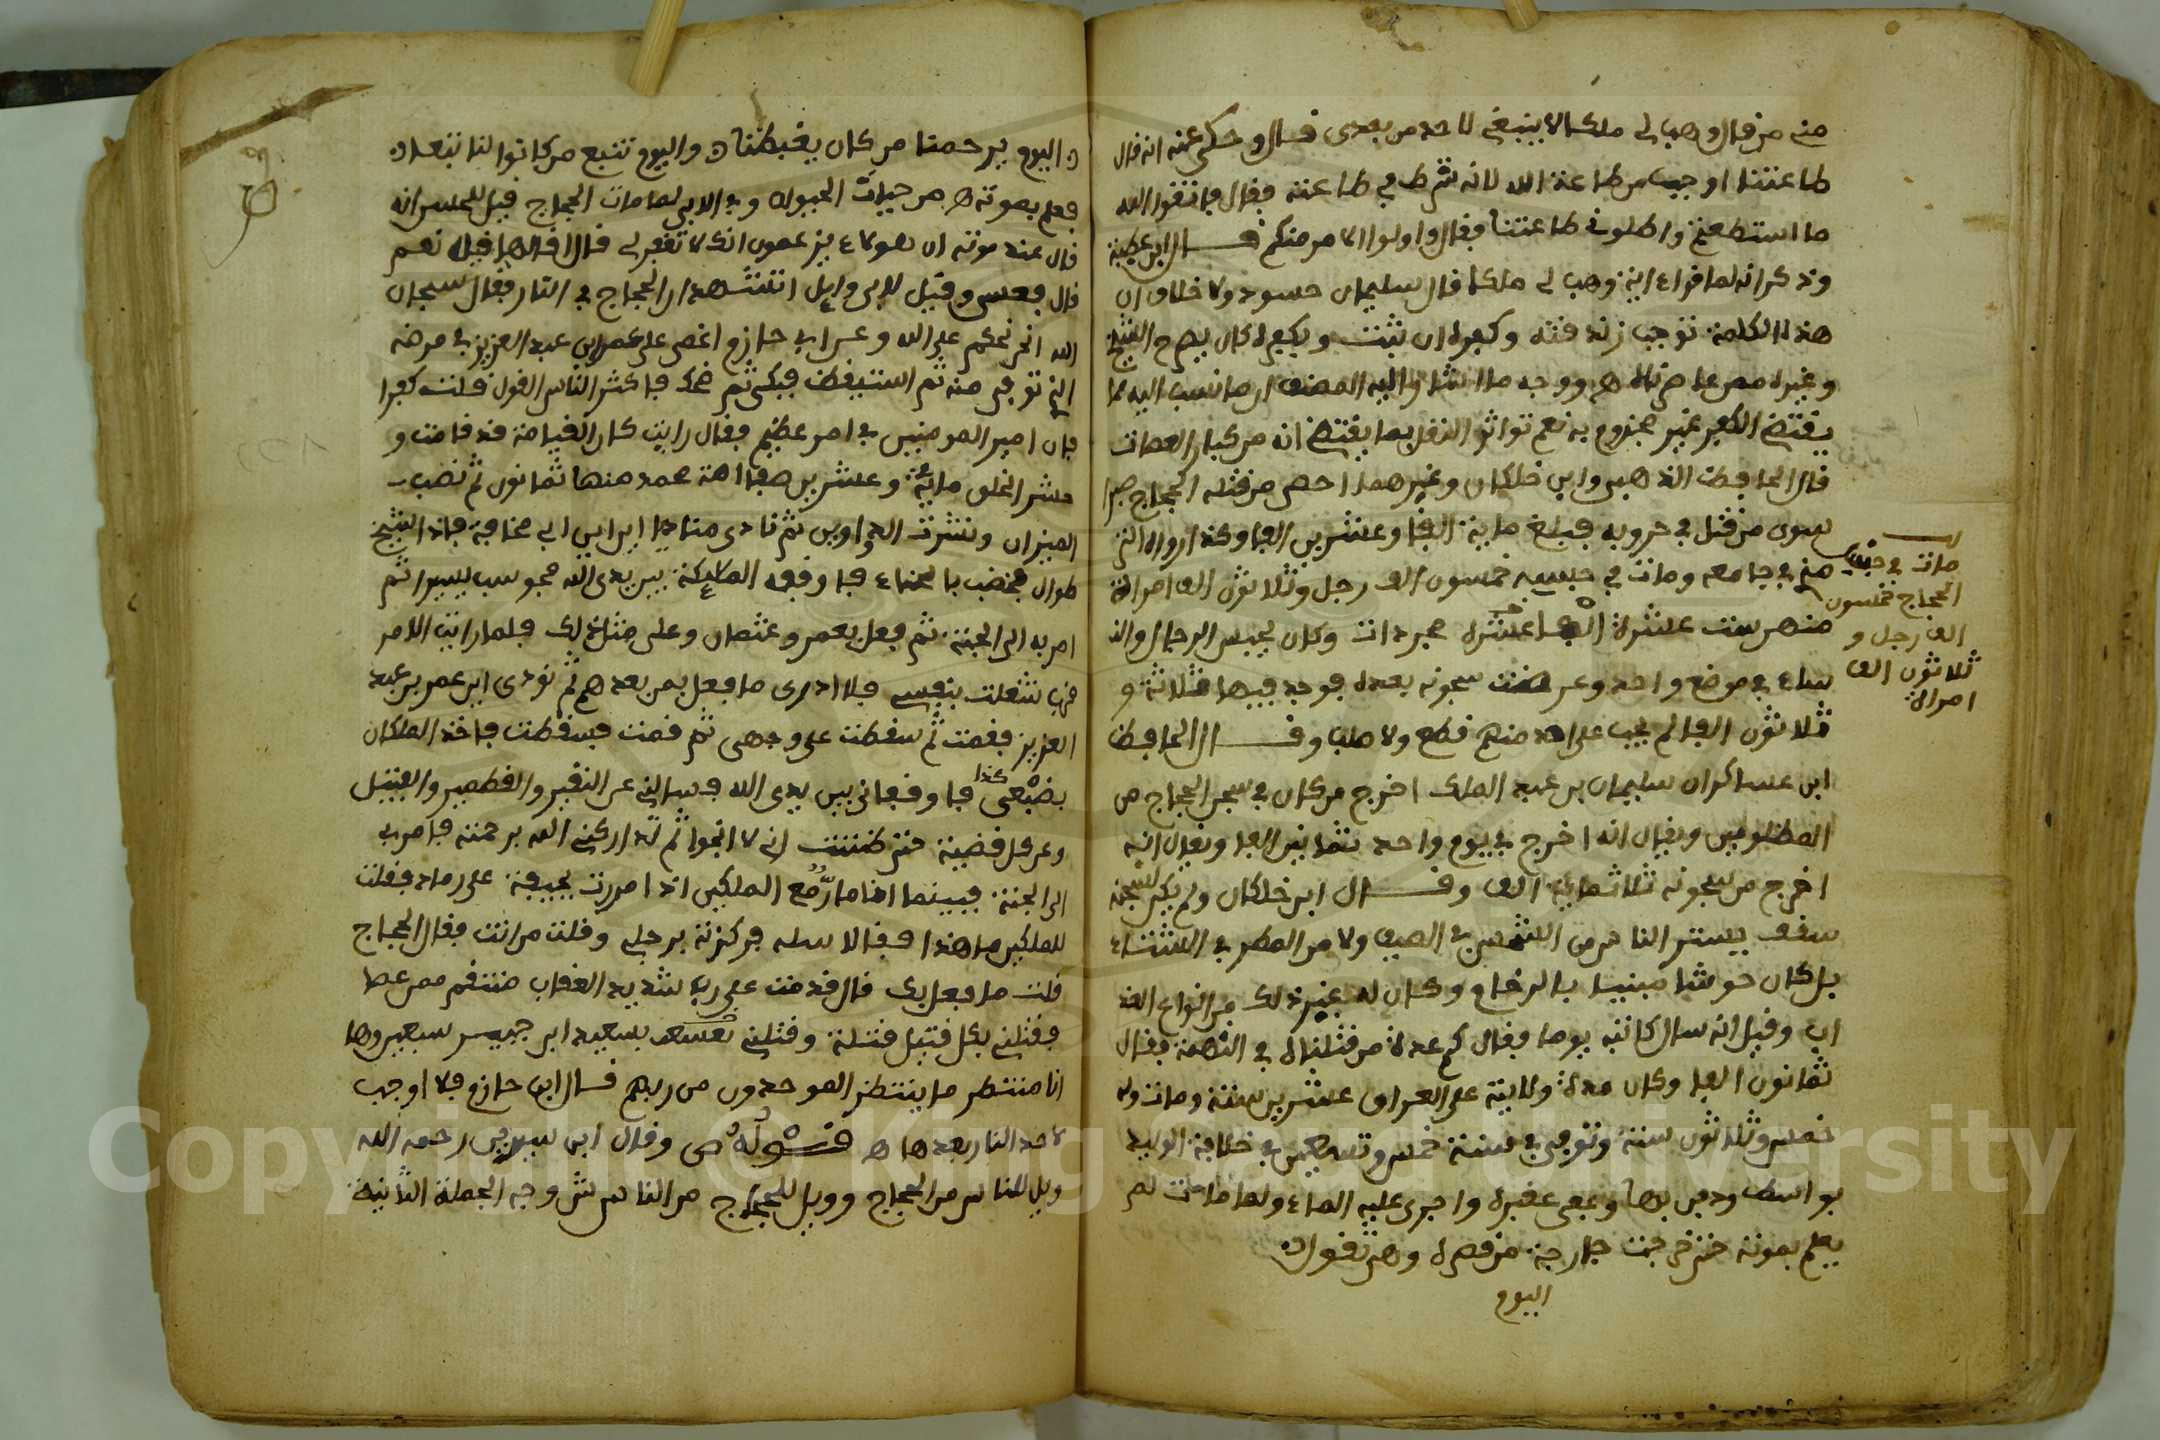 مني من قال وهب لي ملكا لا ينبغي لاحد من بعدي قال وحكي عنه انه قال
طاعتنا اوجب من طاعة الله لانه شرط في طاعته فقال فاتقوا الله
ما استطعتم واطلق في طاعتنا فقال واولوا الامر منكم قال ابن عطية
وذكر انه لما قرا اية وهب لي ملكا قال ان سليمان حسودا ولا خلاف ان
هذه الكلمة توجب زندقته وكفره ان ثبتت وبكفره كان يصرح الشيخ
وغيره ممن عاصرناه هـ ووجه ما اشار اليه المصنف ان ما نسب اليه مما
يقتضي الكفر غير مجزوم به نعم تواتر النقل بما يقتضي انه من كبار العصات
قال الحافظ الذهبي وابن خلكان وغيرهما احصي من قتله الحجاج صبرا
سوى من قتل في حروبه فبلغ ماية الف وعشرين الفا وكذا رواه الترمـ
مذي في جامعه ومات في حبسه خمسون الف رجل وثلاثون الف امراة
منهن ست عشرة الفا مجردات وكان يحبس الرجال والنـ
ساء في موضع واحد وعرضت سجونه بعده فوجد فيها ثلاثة و
ثلاثون الفا لم يجب على احد منهم قطع ولا صلب وقال الحافظ
ابن عساكر ان سليمان بن عبد الملك اخرج من كان في سجن الحجاج من
المظلومين ويقال انه اخرج في يوم واحد ثمانين الفا ويقال انه
اخرج من سجونه ثلاثماية الف وقال ابن خلكان ولم يكن لسجنه
سقف يستر الناس من الشمس في الصيف ولا من المطر في الشتاء
بل كان حوشا مبنيا بالرخام وكان له غير ذلك من انواع العذ
اب وقيل انه سال كاتبه يوما فقال كم عدة من قتلناه في التهمة فقال
ثمانون الفا وكان مدة ولايته على العراق عشرين سنة ومات وله
خمس وثلاثون سنة وتوفي في سنة خمس وتسعين في خلافة الوليد
بواسط ودفن بها وعفي قبره واجري عليه الماء ولما مات لم
يعلم بموته حتى خرجت جارية من قصره وهي تقول
اليوم
مات في حبس
الحجاج خمسون
الف رجل و
ثلاثون الف
امراة
اليوم يرحمنا من كان يغبطنا واليوم نتبع من كانوا لنا تبعا
فعلم بموته هـ من حيات الحيوان وفي الابي لما مات الحجاج قيل للحسن انه
قال عند موته ان هولاء يزعمون انك لا تغفر لي قال اقالها قيل نعم
قال فعسى وقيل لابي وايل اتشهد ان الحجاج في النار فقال سبحان
الله انحن نحكم على الله وعن ابي حازم اغمي على عمر بن عبد العزيز في مرضه
الذي توفي منه ثم استيقظ فبكى ثم ضحك فاكثر الناس القول فقلت كفوا
فان امير المومنين في امر عظيم فقال رايت كان القيامة قد قامت و
حشر الخلق ماية وعشرين صفا امة محمد منها ثمانون ثم نصب
الميزان ونشرت الدواوين ثم نادى مناد اين ابن ابي قحافة فاذا الشيخ
طوال مخضب بالحناء فاوقفه الملايكة بين يدي الله فحوسب يسيرا ثم
امر به الى الجنة ثم فعل بعمر وعثمان وعلي مثل ذلك فلما رايت الامر
قرب شغلت بنفسي فلا ادري ما فعل بمن بعدهم ثم نودي اين عمر بن عبد
العزيز فقمت ثم سقطت على وجهي ثم قمت فسقطت فاخذ الملكان
بضبعي كذا فاوقفاني بين يدي الله فسالني عن النقير والقطمير والفتيل
وعن كل قضية حتى ظننت اني لا انجوا ثم تداركني الله برحمته فامر بي
الى الجنة فبينما انا مار مع الملكين اذا مررت بجيفة على رماد فقلت
للملكين ما هذا فقالا سله فركزته برجلي وقلت من انت فقال الحجاج
قلت ما فعل بك قال قدمت على رب شديد العقاب منتقم ممن عصا
فقتلني بكل قتيل قتلة وقتلني بسعيد ابن جبير سبعين وها
انا منتظر ما ينتظر الموحدون من ربهم قال ابن حازم فلا اوجب
لاحد النار بعدها هـ قـــوله ص وقال ابن سيرين رحمه الله
ويل للناس من الحجاج وويل للحجاج من الناس ش وجه الجملة الثانية